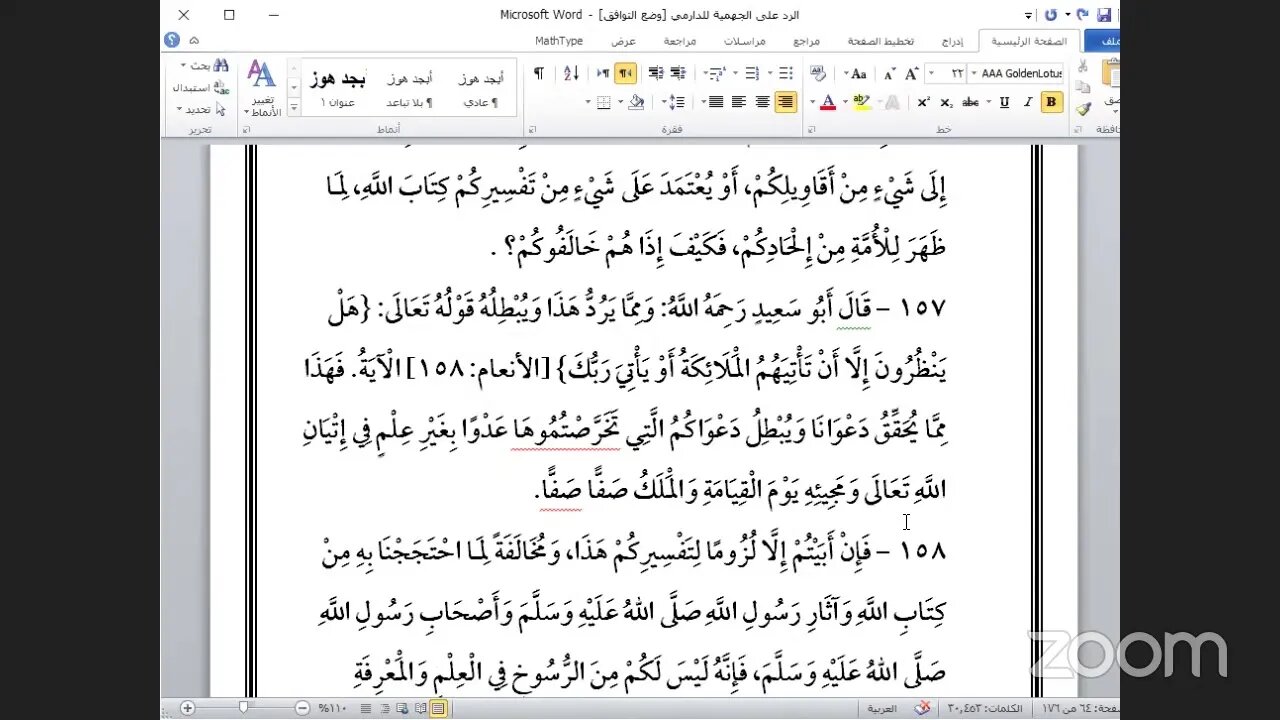 الرد على الجهمية للدارمي [وضع التوافق] - Microsoft Word
ملف
الصفحة الرئيسية
إدراج
تخطيط الصفحة
مراجع
مراسلات
مراجعة
عرض
MathType
AAA GoldenLotus
٢٢
أبجد هوز
أبجد هوز
أبجد هوز
¶ عادي
¶ بلا تباعد
عنوان ١
تغيير
الأنماط
بحث
استبدال
تحديد
خط
فقرة
أنماط
تحرير
إِلَى شَيْءٍ مِنْ أَقَاوِيلِكُمْ، أَوْ يُعْتَمَدَ عَلَى شَيْءٍ مِنْ تَفْسِيرِكُمْ كِتَابَ اللَّهِ، لِمَا
ظَهَرَ لِلْأُمَّةِ مِنْ إِلْحَادِكُمْ، فَكَيْفَ إِذَا هُمْ خَالَفُوكُمْ؟ .
١٥٧ – قَالَ أَبُو سَعِيدٍ رَحِمَهُ اللَّهُ: وَمِمَّا يَرُدُّ هَذَا وَيُبْطِلُهُ قَوْلُهُ تَعَالَى: {هَلْ
يَنْظُرُونَ إِلَّا أَنْ تَأْتِيَهُمُ الْمَلَائِكَةُ أَوْ يَأْتِيَ رَبُّكَ} [الأنعام: ١٥٨] الْآيَةُ. فَهَذَا
مِمَّا يُحَقِّقُ دَعْوَانَا وَيُبْطِلُ دَعْوَاكُمُ الَّتِي تَخَرَّصْتُمُوهَا عَدْوًا بِغَيْرِ عِلْمٍ فِي إِتْيَانِ
اللَّهِ تَعَالَى وَمَجِيئِهِ يَوْمَ الْقِيَامَةِ وَالْمَلَكُ صَفًّا صَفًّا.
١٥٨ – فَإِنْ أَبَيْتُمْ إِلَّا لُزُومًا لِتَفْسِيرِكُمْ هَذَا، وَمُخَالَفَةً لِمَا احْتَجَجْنَا بِهِ مِنْ
كِتَابِ اللَّهِ وَآثَارِ رَسُولِ اللَّهِ صَلَّى اللهُ عَلَيْهِ وَسَلَّمَ وَأَصْحَابِ رَسُولِ اللَّهِ
صَلَّى اللهُ عَلَيْهِ وَسَلَّمَ، فَإِنَّهُ لَيْسَ لَكُمْ مِنَ الرُّسُوخِ فِي الْعِلْمِ وَالْمَعْرِفَةِ
zoom
صفحة: ٦٤ من ١٧٦
الكلمات: ٣٠,٤٥٣
العربية
١١٠%